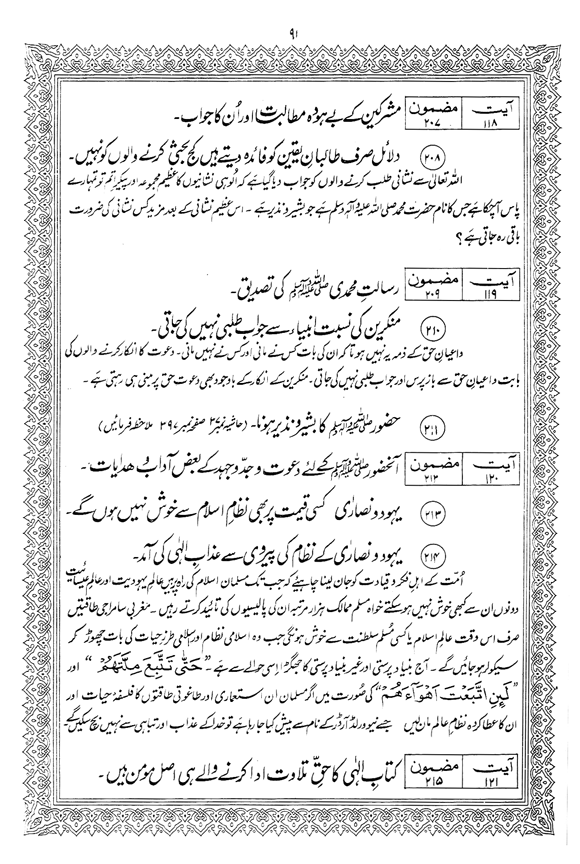 ۹۱
آیت ۱۱۸ مضمون ۲۰۷ مشرکین کے بے ہودہ مطالبت اور اُن کا جواب۔
۲۰۸ دلائل صرف طالبان یقین کو فائدہ دیتے ہیں کج بحثی کرنے والوں کو نہیں۔
اللہ تعالیٰ سے نشانی طلب کرنے والوں کو جواب دیا گیا ہے کہ الُوہی نشانیوں کا عظیم مجموعہ اور پیکرِ اتم تو تمہارے
پاس آ چکا ہے جس کا نام حضرت محمد صلی اللہ علیہ وآلہ وسلم ہے جو بشیر و نذیر ہے۔ اس عظیم نشانی کے بعد مزید کس نشانی کی ضرورت
باقی رہ جاتی ہے؟
آیت ۱۱۹ مضمون ۲۰۹ رسالتِ محمدی ﷺ کی تصدیق۔
۲۱۰ منکرین کی نسبت انبیاء سے جواب طلبی نہیں کی جاتی۔
داعیانِ حق کے ذمہ یہ نہیں ہوتا کہ ان کی بات کس نے مانی اور کس نے نہیں مانی۔ دعوت کا انکار کرنے والوں کی
بابت داعیانِ حق سے باز پرس اور جواب طلبی نہیں کی جاتی۔ منکرین کے انکار کے باوجود بھی دعوت حق پر مبنی ہی رہتی ہے۔
۲۱۱ حضور ﷺ کا بشیر و نذیر ہونا۔ (حاشیہ نمبر ۲ صفحہ نمبر ۲۹۷ ملاحظہ فرمائیں)
آیت ۱۲۰ مضمون ۲۱۲ آنحضور ﷺ کے لئے دعوت و جدّ و جہد کے بعض آداب و ھدایات۔
۲۱۳ یہود و نصاریٰ کسی قیمت پر بھی نظامِ اسلام سے خوش نہیں ہوں گے۔
۲۱۴ یہود و نصاریٰ کے نظام کی پیروی سے عذاب الٰہی کی آمد۔
اُمّت کے اہلِ فکر و قیادت کو جان لینا چاہیئے کہ جب تک مسلمان اسلام کی راہ پر ہیں عالمِ یہودیت اور عالمِ عیسائیت
دونوں ان سے کبھی خوش نہیں ہو سکتے خواہ مسلم ممالک ہزار مرتبہ ان کی پالیسیوں کی تائید کرتے رہیں۔ مغربی سامراجی طاقتیں
صرف اس وقت عالمِ اسلام یا کسی مُسلم سلطنت سے خوش ہونگی جب وہ اسلامی نظام اور اسلامی طرزِ حیات کی بات چھوڑ کر
سیکولر ہو جائیں گے۔ آج بنیاد پرستی اور غیر بنیاد پرستی کا جھگڑا اِسی حوالے سے ہے "حَتّٰی تَتَّبِعَ مِلَّتَهُمْ" اور
"لَىِٕنِ اتَّبَعْتَ اَهْوَآءَهُمْ" کی صُورت میں اگر مسلمان ان استعماری اور طاغوتی طاقتوں کا فلسفۂ حیات اور
ان کا عطا کردہ نظامِ عالم مان لیں جسے نیو ورلڈ آرڈر کے نام سے پیش کیا جا رہا ہے تو خدا کے عذاب اور تباہی سے نہیں بچ سکیں گے
آیت ۱۲۱ مضمون ۲۱۵ کتابِ الٰہی کا حقِّ تلاوت ادا کرنے والے ہی اصل مؤمن ہیں۔